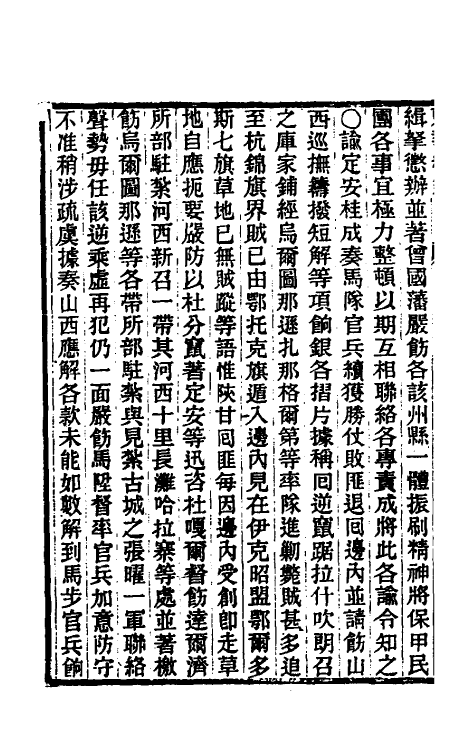 緝拏懲辦並著曾國藩嚴飭各該州縣一體振刷精神將保甲民
團各事宜極力整頓以期互相聯絡各專責成將此各諭令知之
〇諭定安桂成奏馬隊官兵續獲勝仗敗匪退回邊內並請飭山
西巡撫籌撥短解等項餉銀各摺片據稱回逆竄踞拉什吹朗召
之庫家鋪經烏爾圖那遜扎那格爾第等率隊進勦斃賊甚多追
至杭錦旗界賊已由鄂托克旗遁入邊內見在伊克昭盟鄂爾多
斯七旗草地已無賊蹤等語惟陝甘回匪每因邊內受創卽走草
地自應扼要嚴防以杜分竄著定安等迅咨杜嘎爾督飭達爾濟
所部駐紮河西新召一帶其河西十里長灘哈拉寨等處並著檄
飭烏爾圖那遜等各帶所部駐紮與見紮古城之張曜一軍聯絡
聲勢毋任該逆乘虛再犯仍一面嚴飭馬陞督率官兵加意防守
不准稍涉疏虞據奏山西應解各款未能如數解到馬步官兵餉